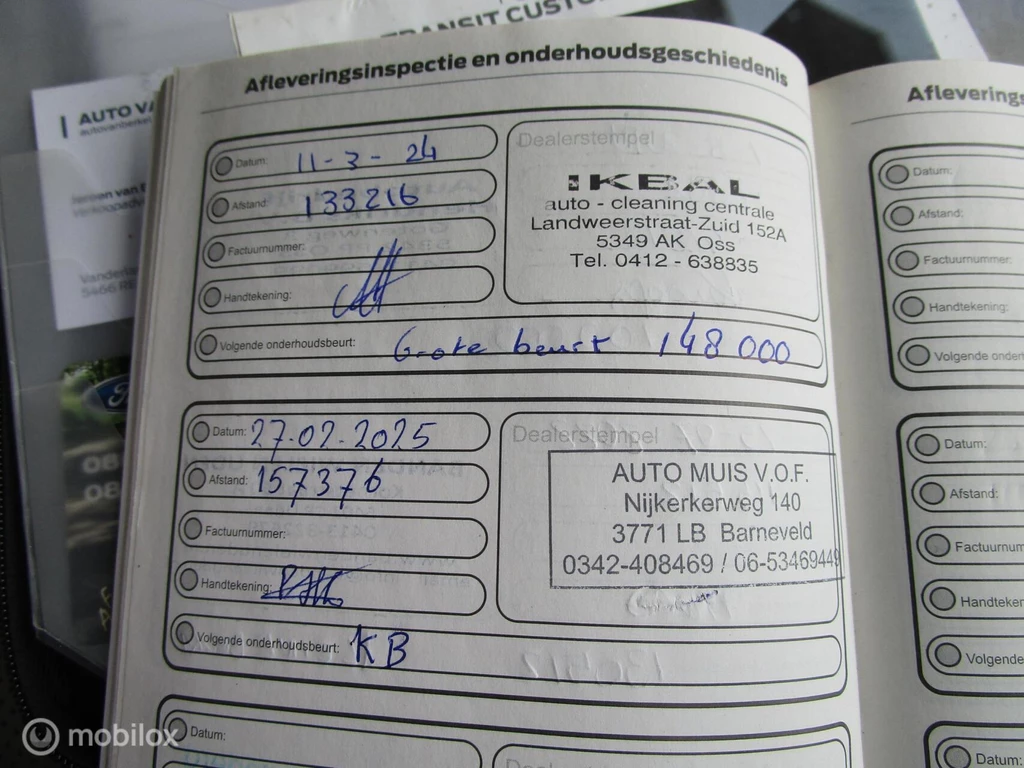 TRANSIT CUSTO
AUTO VA
autovanberkel
Verkoopadv
5466 R
Afleveringsinspectie en onderhoudsgeschiedenis
Datum: 11-3-24
Afstand: 133216
Factuurnummer:
Handtekening:
Volgende onderhoudsbeurt: Grote beurt 148 000
Dealerstempel
IKBAL
auto - cleaning centrale
Landweerstraat-Zuid 152A
5349 AK Oss
Tel. 0412 - 638835
Datum: 27-02-2025
Afstand: 157376
Factuurnummer:
Handtekening:
Volgende onderhoudsbeurt: KB
Dealerstempel
AUTO MUIS V.O.F.
Nijkerkerweg 140
3771 LB Barneveld
0342-408469 / 06-53469449
Datum:
Dealerstempel
Afleverings
Datum:
Afstand:
Factuurnummer:
Handtekening:
Volgende onderh
Datum:
Afstand:
Factuurnum
Handteken
Volgende
Datum:
mobilox